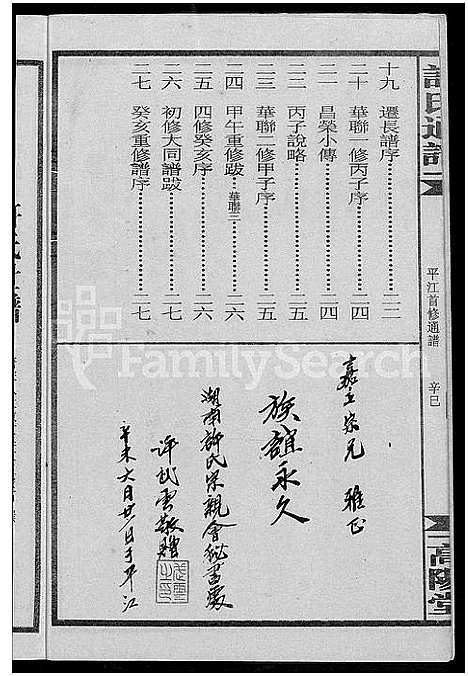 許氏通譜
平江首修通譜 辛巳
高陽堂
十九 遷長譜序 二二
二十 華聯一修丙子序 二四
二一 昌榮小傳 二四
二二 丙子說略 二五
二三 華聯二修甲子序 二五
二四 甲午重修跋 華聯三 二六
二五 四修癸亥序 二六
二六 初修大同譜跋 二七
二七 癸亥重修譜序 二七
宗兄 雅正
族誼永久
湖南許氏宗親會秘書處
許武雲敬贈
辛未六月廿一日于平江
FamilySearch